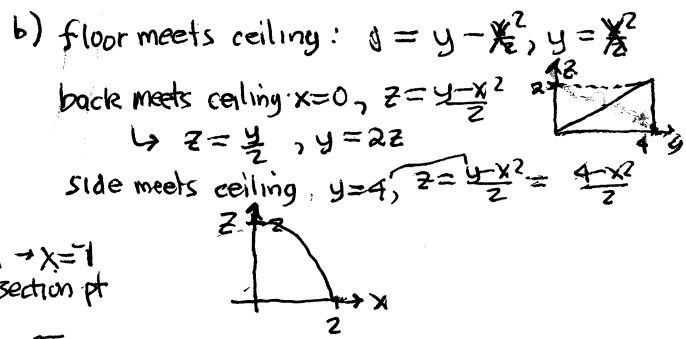 b) floor meets ceiling: 0 = y - x², y = x²
z
back meets ceiling: x=0, z = (y-x²)/2
2
↳ z = y/2, y = 2z
4 y
side meets ceiling, y=4, z = (y-x²)/2 = (4-x²)/2
z 2
→ x=-1
section pt
x
2